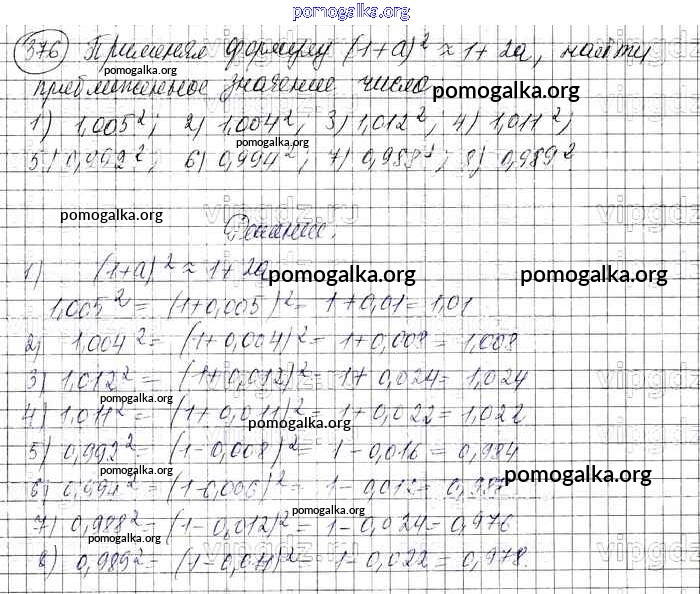 pomogalka.org
376 Применяя формулу (1+a)² ≈ 1+2a, найти
pomogalka.org
приближенное значение числа:
pomogalka.org
1) 1,005²; 2) 1,004²; 3) 1,012²; 4) 1,011²;
pomogalka.org
pomogalka.org
5) 0,992²; 6) 0,994²; 7) 0,988²; 8) 0,989²
pomogalka.org
vipgdz.ru
Решение.
1) (1+a)² ≈ 1+2a
pomogalka.org
pomogalka.org
1,005² = (1+0,005)² = 1+0,01 = 1,01
2) 1,004² = (1+0,004)² = 1+0,008 = 1,008
pomogalka.org
3) 1,012² = (1+0,012)² = 1+0,024 = 1,024
vipgdz.ru
pomogalka.org
4) 1,011² = (1+0,011)² = 1+0,022 = 1,022
pomogalka.org
5) 0,992² = (1-0,008)² = 1-0,016 = 0,984
pomogalka.org
pomogalka.org
6) 0,994² = (1-0,006)² = 1-0,012 =
7) 0,988² = (1-0,012)² = 1-0,024 = 0,976
pomogalka.org
vipgdz.ru
8) 0,989² = (1-0,011)² = 1-0,022 = 0,978.